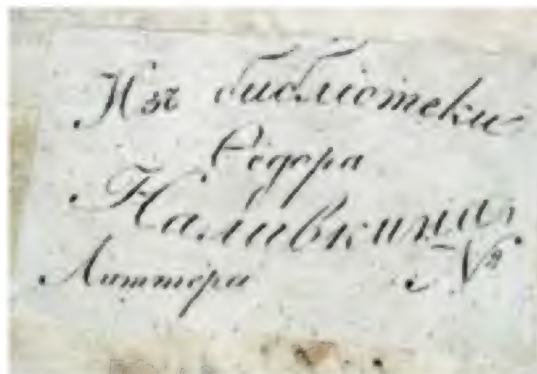 Изъ библіотеки
Ѳедора
Наливкина
Литтера №